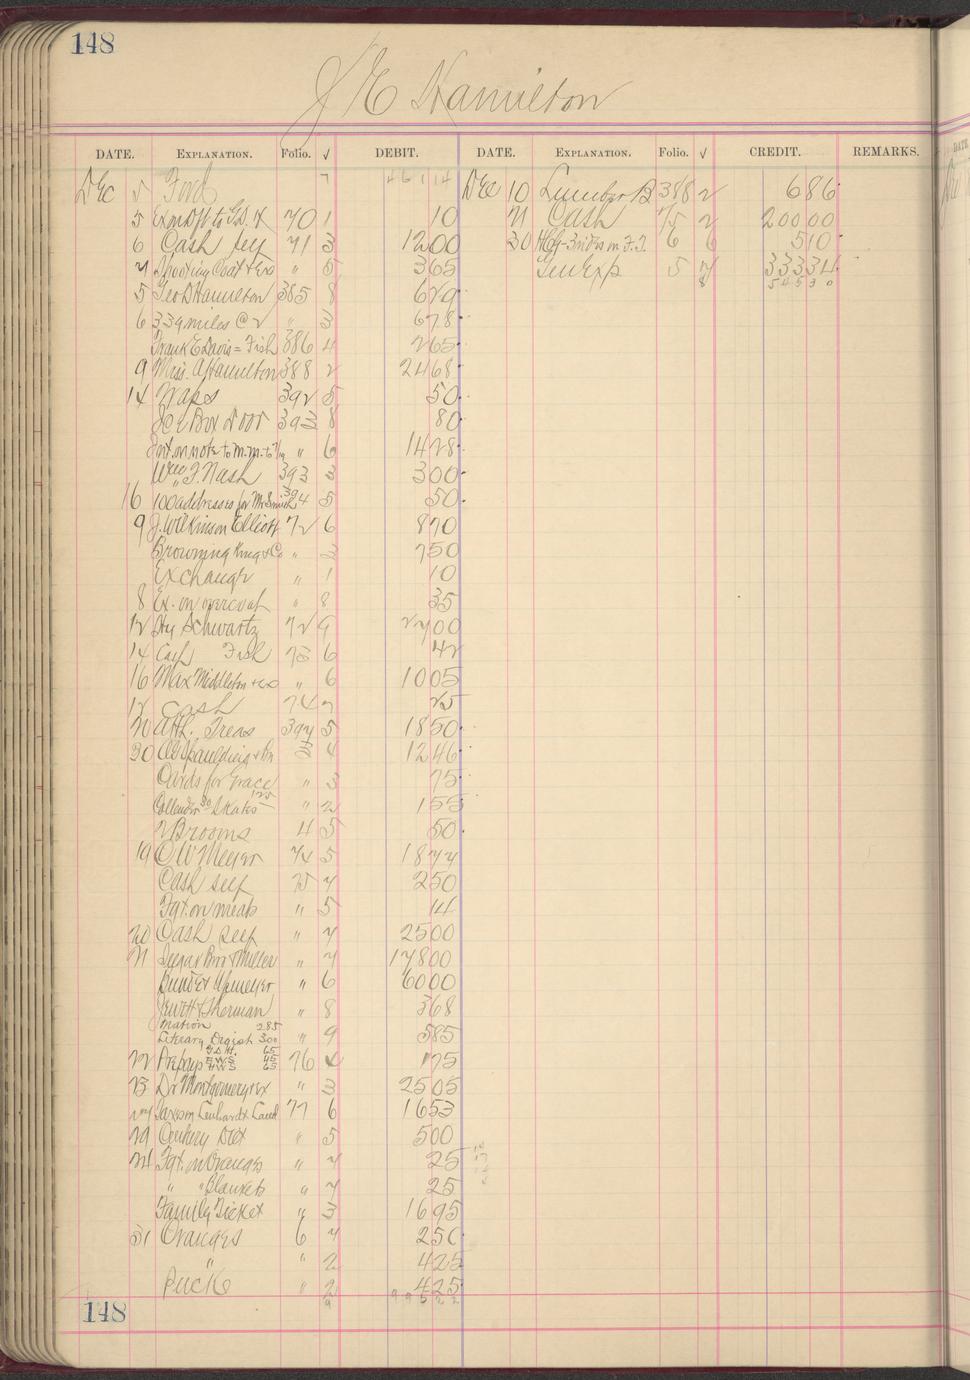 148
J E Hamilton
DATE. EXPLANATION. Folio. √ DEBIT. DATE. EXPLANATION. Folio. √ CREDIT. REMARKS.
Dec 5 Ford 7 461 14 Dec 10 Lumber B 388 2 686
5 Ex on Dft to 70 1 10 21 Cash 75 2 20000
6 Cash self 71 3 1200 30 6 6 510
7 Shooting Coat + Exs " 5 365 Gen Exp 5 7 33334
5 Geo D Hamilton 385 8 629 8 54530
6 339 miles @ 2 " 3 678
Frank E Davis = Fish 386 4 265
9 Miss. A Hamilton 388 2 2468
14 Maps 392 5 50
Ice Box Door 393 8 80
Int. on note to M.M. to " 6 1428
Wm F. Nash 393 3 300
16 100 addresses for Mr Smith 394 5 50
9 J. Wilkinson Elliott 72 6 870
Browning King & Co " 2 750
Exchange " 1 10
8 Ex. on overcoat " 8 35
12 Hy Schwartz 72 9 2700
14 Cash Fish 73 6 42
16 Max Middleton + ex " 6 1005
17 Cash 74 7 25
20 Ath. Treas 394 5 1850
30 AG Spaulding & Br 3 4 1246
Cards for Grace " 3 75
Callender 30 Skates 125 " 2 155
2 Brooms 4 5 50
19 C W Meyer 74 5 1877
Cash self 75 7 250
Fgt. on meats " 5 14
20 Cash self " 7 2500
21 Segar Bros & Miller " 7 17800
" 6 6000
Jewett & Sherman " 8 368
Nation 285
Literary Digest 300 " 9 585
22 Prepays 76 4 175
G.D.H. 65
E.W.S. 45
H.W.S. 65
23 Dr Montgomery + ex " 3 2505
77 6 1653
29 Century Dict " 5 500
24 Fgt. on Oranges " 7 25
" " Blankets " 7 25
Family Ticket " 3 1695
31 Oranges 6 7 250
" " 2 425
Puck " 2 425
9 99522
148